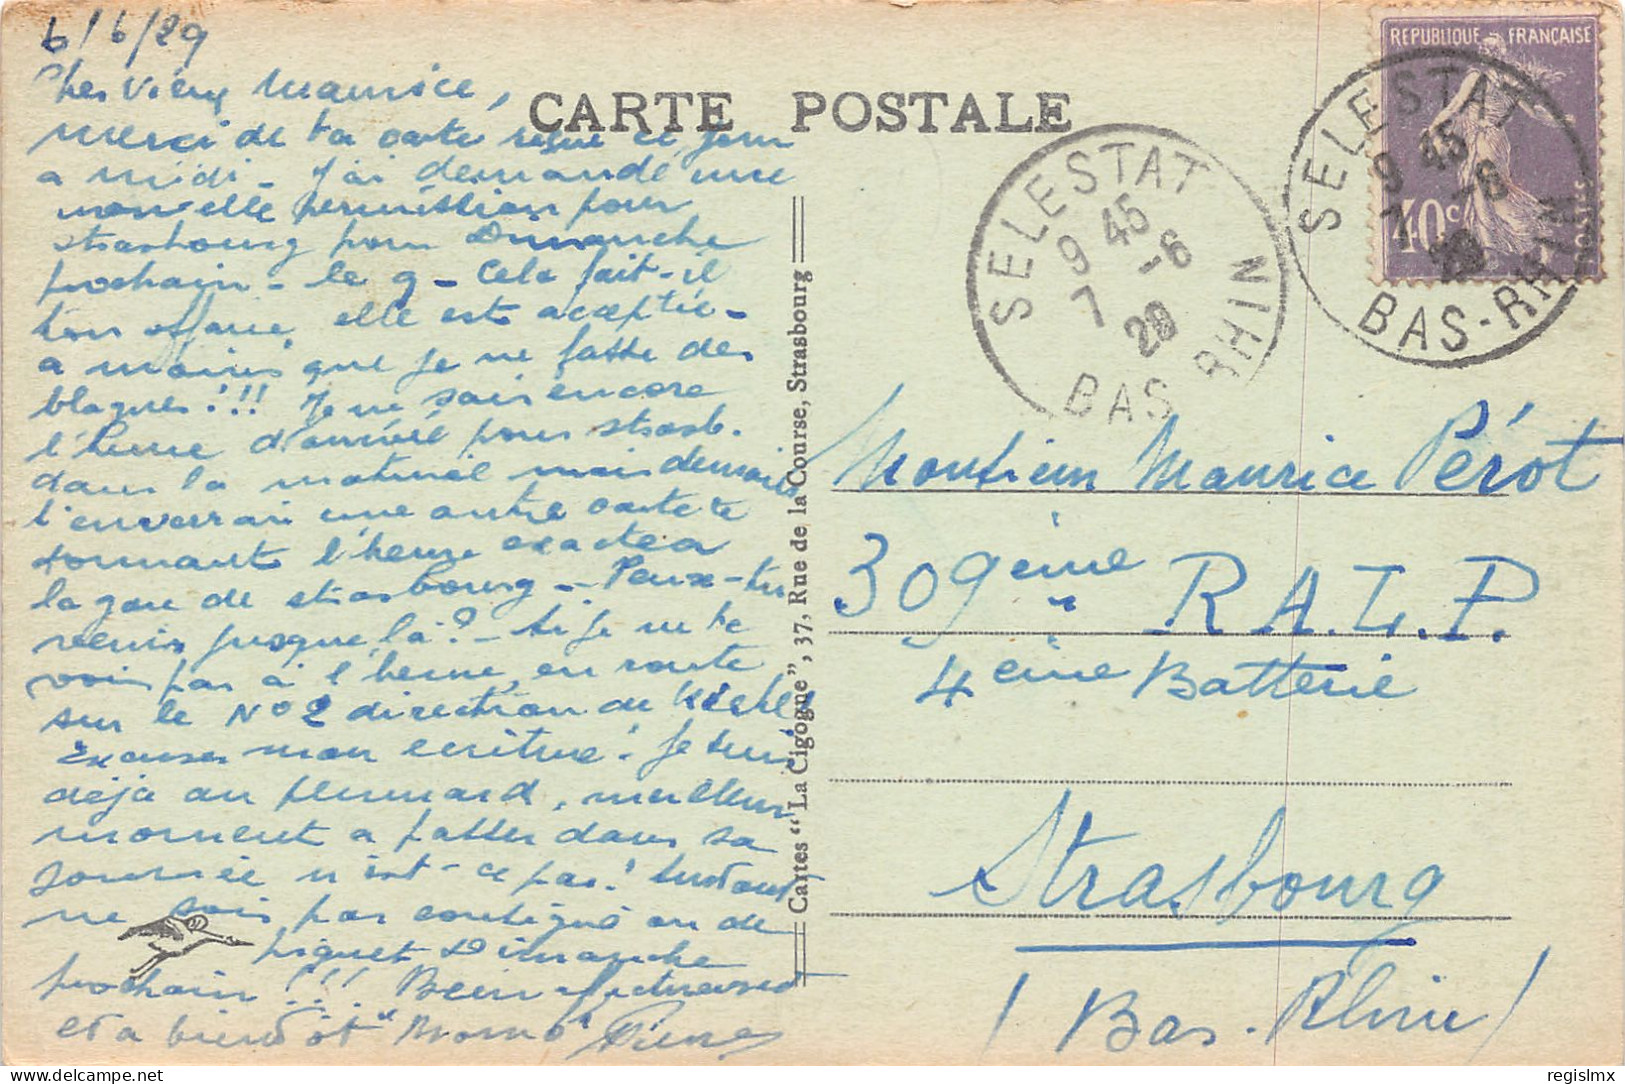 6/6/29
Cher Vieux Maurice,
merci de ta carte reçue ce jour
a midi - J'ai demandé une
nouvelle permission pour
Strasbourg pour Dimanche
prochain - le 9 - Cela fait-il
ton affaire, elle est acceptée -
a moins que je ne fasse des
blagues!!! Je ne sais encore
l'heure d'arrivée pour Strasb.
dans la matinée mais demain
t'enverrai une autre carte te
donnant l'heure exacte a
la gare de Strasbourg - Peux-tu
venir jusque là? - Si je ne te
vois pas à l'heure, en route
sur le No 2 direction de Kiehl
Excuses mon ecriture! Je suis
déjà au plumard, meilleur
moment a passer dans sa
journée n'est-ce pas! Surtout
ne sois pas consigné ou de
piquet Dimanche
prochain!!! Bien affectueusement
et a bientôt "Momo" Pierre
CARTE POSTALE
Cartes "La Cigogne", 37, Rue de la Course, Strasbourg
REPUBLIQUE FRANÇAISE
40c
POSTES
SELESTAT
9 45
7 -6
29
BAS-RHIN
SELESTAT
9 45
7 -6
29
BAS RHIN
Monsieur Maurice Pérot
309ème R.A.L.P.
4ème Batterie
Strasbourg
(Bas-Rhin)
delcampe.net
regislmx